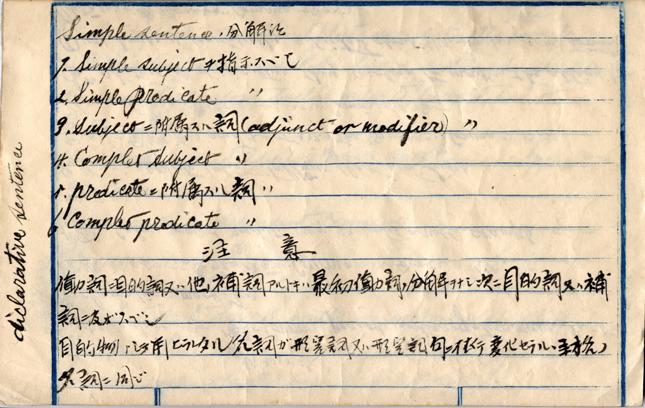 Simple sentence, 分解法
1. Simple subject ヲ指示スベシ
2. Simple predicate 〃
3. Subject = 附属スル詞 (adjunct or modifier) 〃
4. Complet subject 〃
5. predicate = 附属スル詞 〃
6 Complet predicate 〃
注意
働詞ニ目的詞又ハ他ノ補詞アルトキハ最初働詞ヲ分解ヲナシ次ニ目的詞又ハ補
詞ニ及ボスベシ
目的物 名詞ガ形容詞又ハ形容詞句ニ
名詞ニ同ジ
diclarative sentence